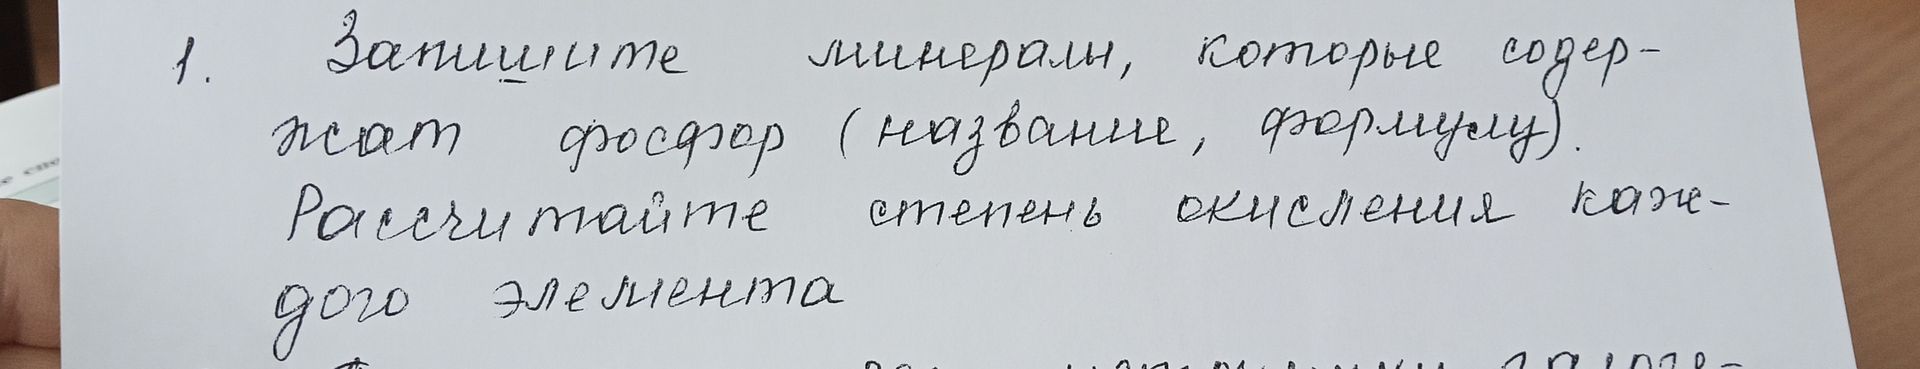 1. Запишите минералы, которые содер-
жат фосфор (название, формулу).
Рассчитайте степень окисления каж-
дого элемента